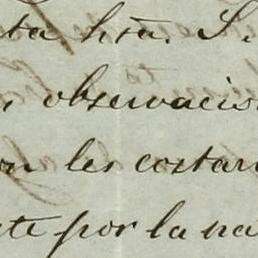 ta hra. S.
observacio
on les costar
te por la na